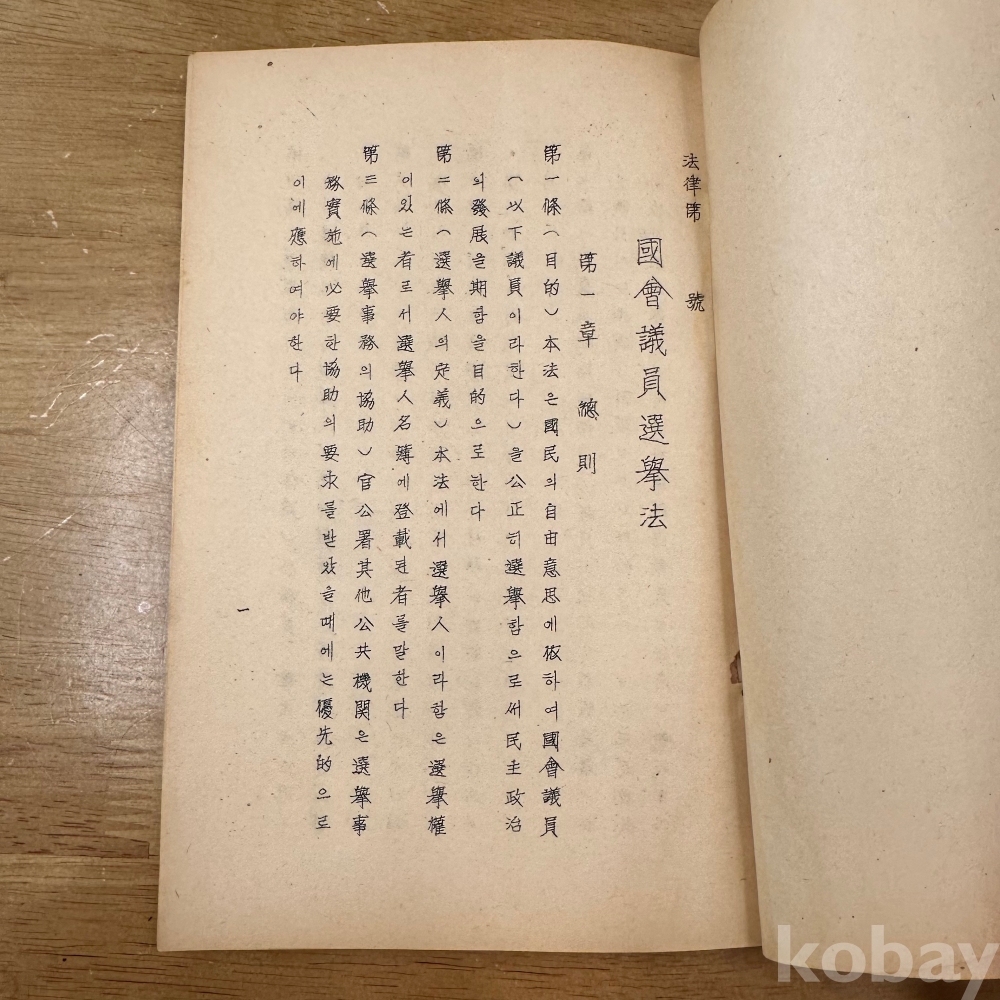 法律第 號
國會議員選擧法
第一章 總則
第一條(目的)本法은國民의自由意思에依하여國會議員
(以下議員이라한다)을公正히選擧함으로써民主政治
의發展을期함을目的으로한다
第二條(選擧人의定義)本法에서選擧人이라함은選擧權
이있는者로서選擧人名簿에登載된者를말한다
第三條(選擧事務의協助)官公署其他公共機関은選擧事
務實施에必要한協助의要求를받았을때에는優先的으로
이에應하여야한다
一
kobay